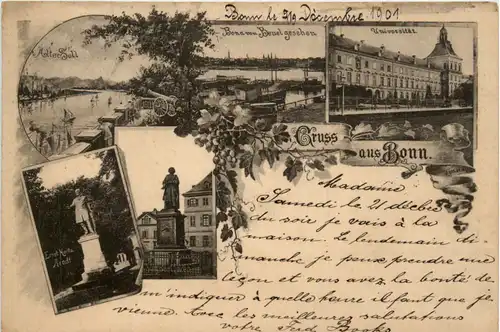 Bonn le 9/10 Décembre 1901
Alter Zoll
Bonn von Beuel gesehen
Universität
Gruss
aus Bonn.
Ernst Moritz
Arndt
Madame
Samedi le 21 décbre
du soir je vais à la
maison. Le lendemain di-
manche je peux prendre une
leçon et vous avez la bonté de
m'indiquer à quelle heure il faut que je
vienne. Avec les meilleures salutations
votre Fred